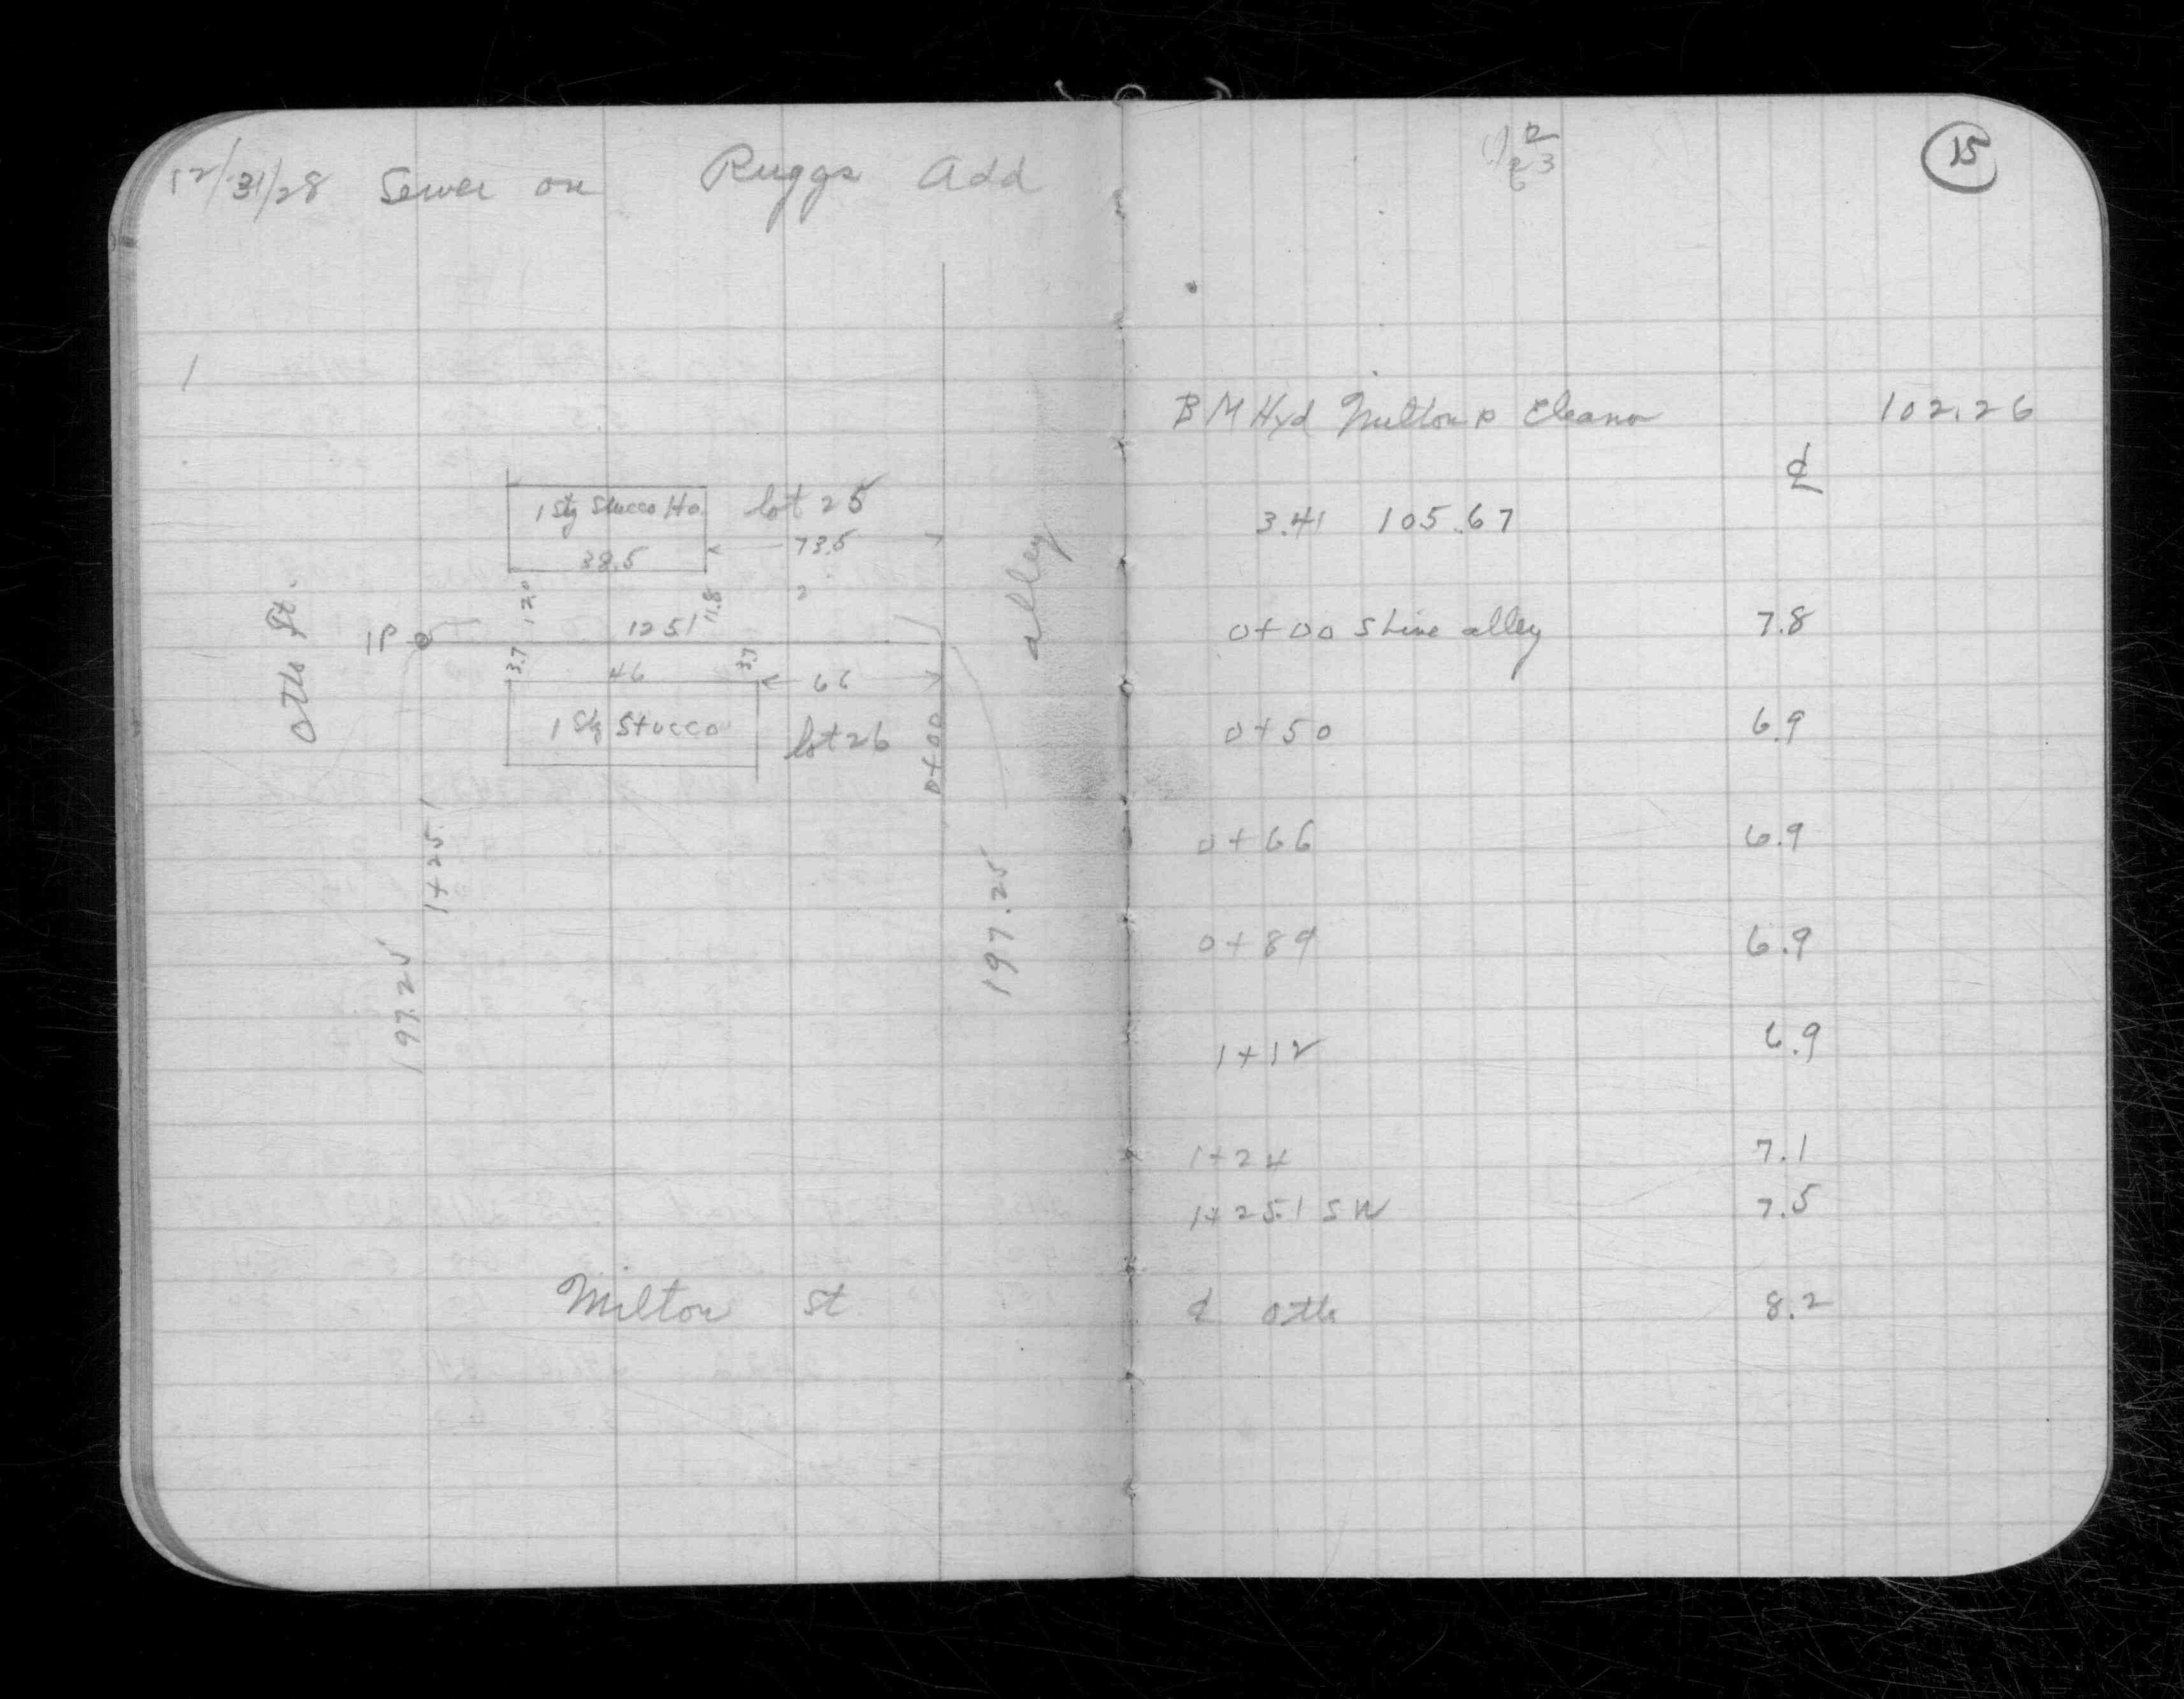 12/31/28 Sewer on Ruggs Add
1 Sty Stucco Ho.
38.5
lot 25
73.5
alley
12.0
11.8
Otts St.
IP
125.1
3.7
46
3.7
66
1 Sty Stucco
lot 26
0+00
1+25.1
197.25
197.25
Milton St
15
BM Hyd Milton & Eleanor 102.26
℄
3.41 105.67
0+00 S Line alley 7.8
0+50 6.9
0+66 6.9
0+89 6.9
1+12 6.9
1+24 7.1
1+25.1 SW 7.5
℄ Otts 8.2